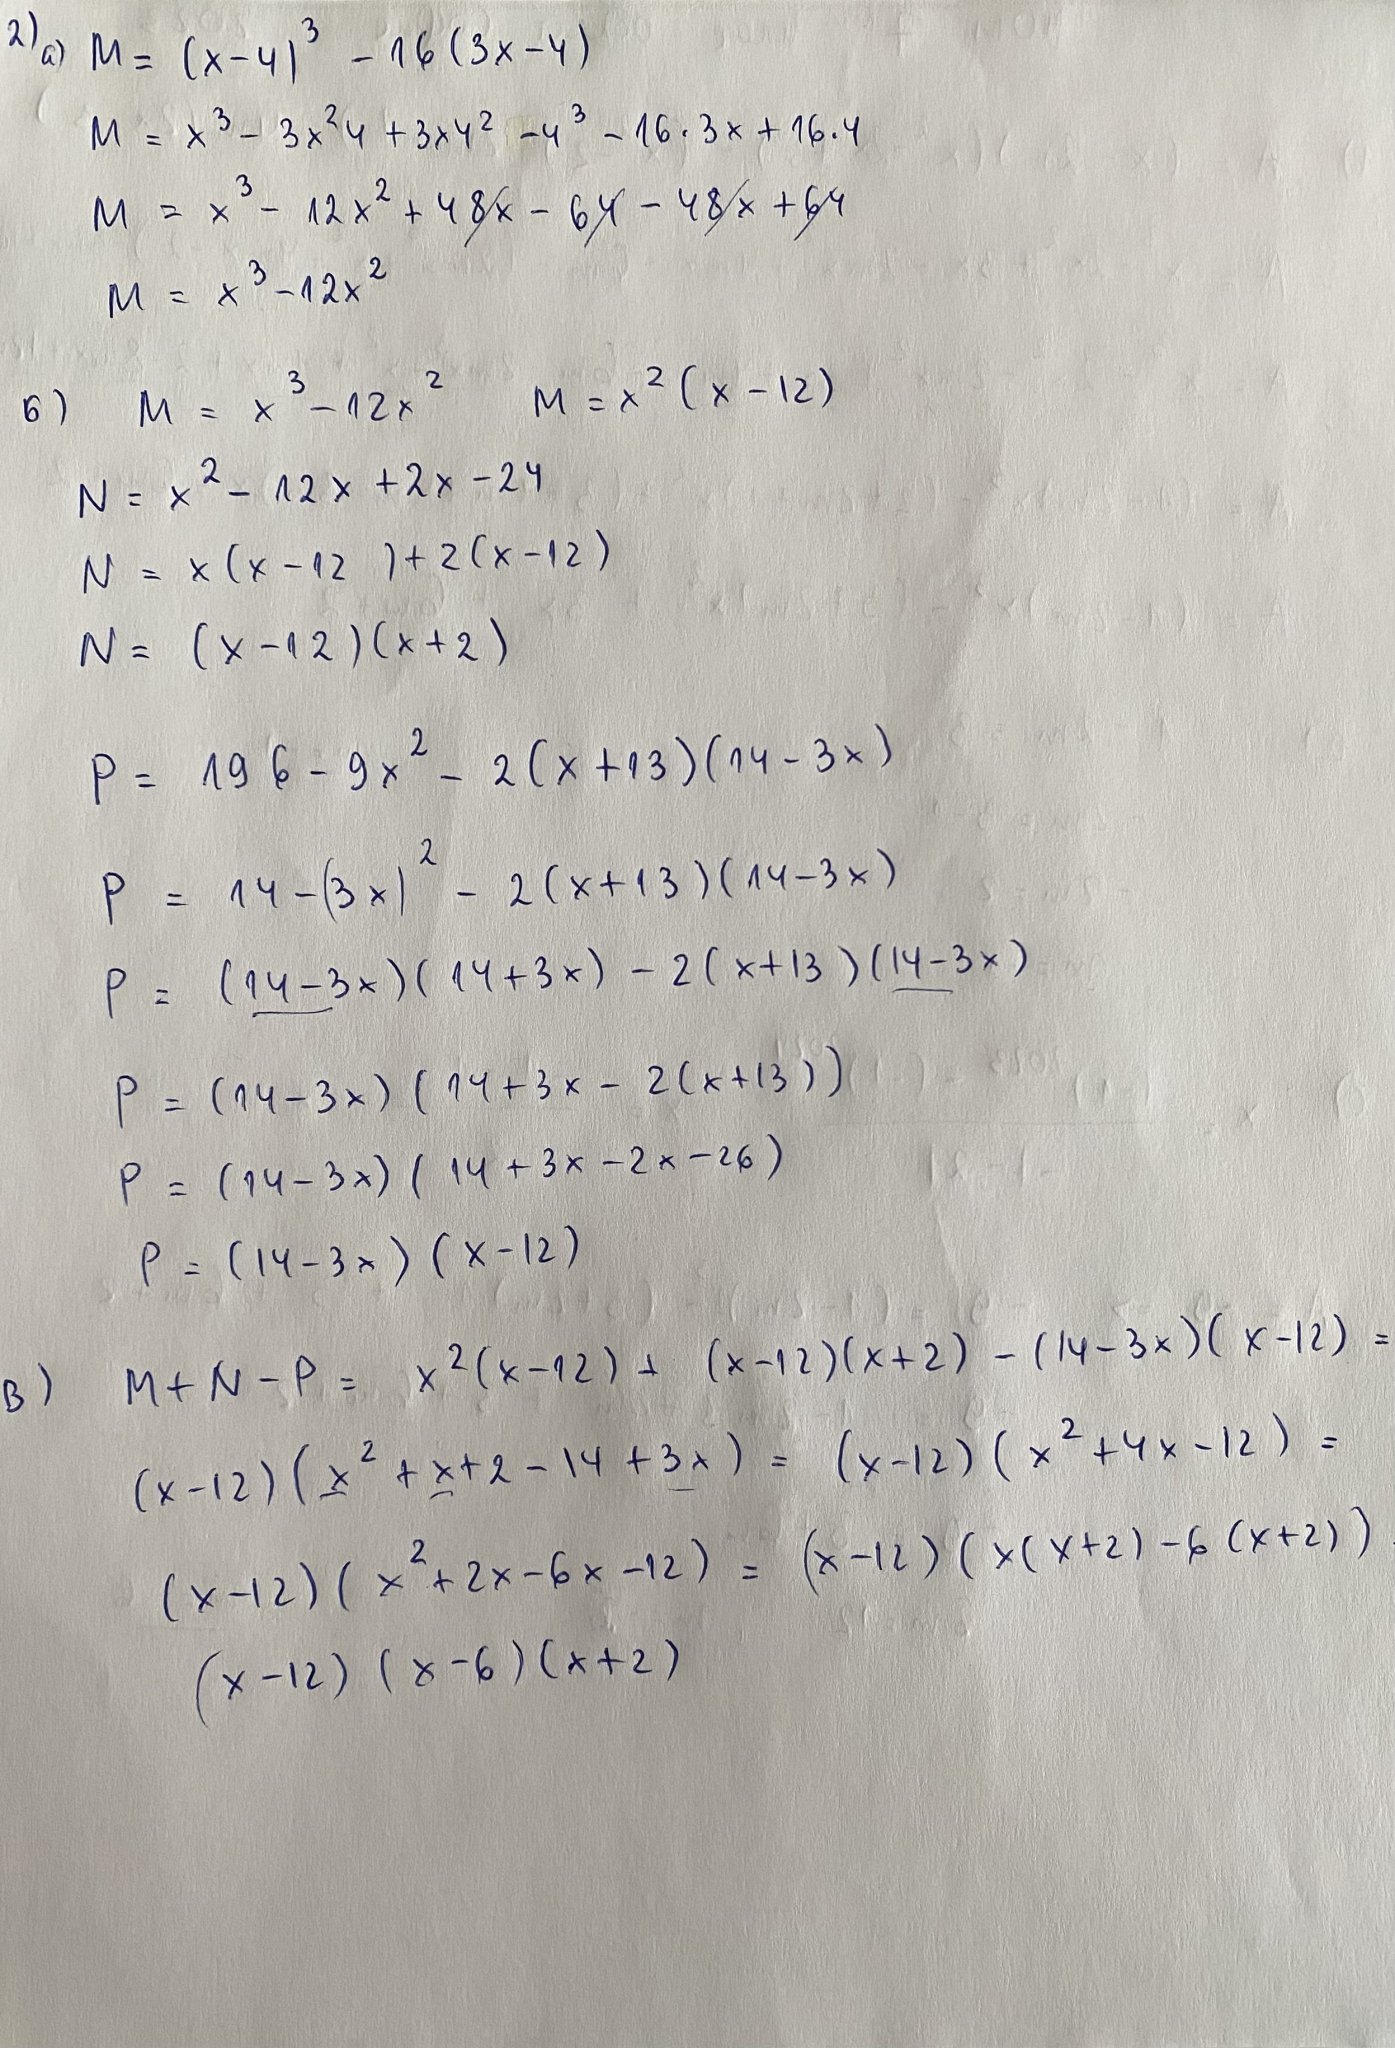 2) a) M = (x-4)³ - 16(3x-4)
M = x³ - 3x²4 + 3x4² - 4³ - 16.3x + 16.4
M = x³ - 12x² + 48x - 64 - 48x + 64
M = x³ - 12x²
б) M = x³ - 12x² M = x²(x-12)
N = x² - 12x + 2x - 24
N = x(x-12) + 2(x-12)
N = (x-12)(x+2)
P = 196 - 9x² - 2(x+13)(14-3x)
P = 14 - (3x)² - 2(x+13)(14-3x)
P = (14-3x)(14+3x) - 2(x+13)(14-3x)
P = (14-3x)(14+3x - 2(x+13))
P = (14-3x)(14+3x-2x-26)
P = (14-3x)(x-12)
в) M+N-P = x²(x-12) + (x-12)(x+2) - (14-3x)(x-12) =
(x-12)(x²+x+2-14+3x) = (x-12)(x²+4x-12) =
(x-12)(x²+2x-6x-12) = (x-12)(x(x+2)-6(x+2))
(x-12)(x-6)(x+2)